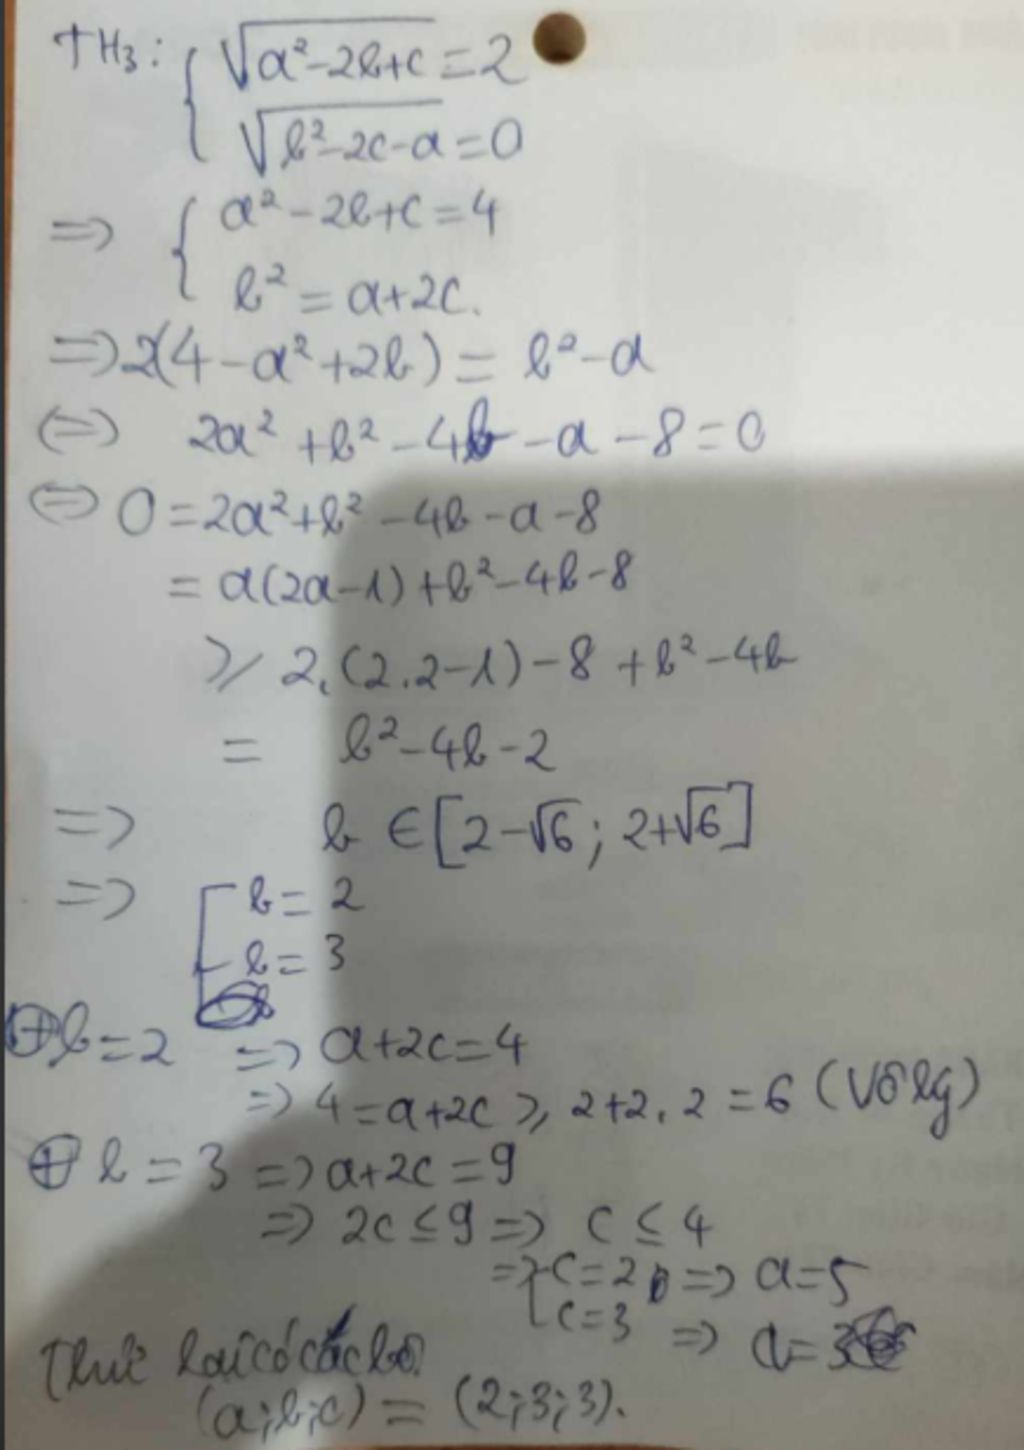 TH3: { √(a²-2b+c) = 2
√(b²-2c-a) = 0
=> { a²-2b+c = 4
b² = a+2c.
=> 2(4-a²+2b) = b²-a
<=> 2a²+b²-4b-a-8=0
<=> 0=2a²+b²-4b-a-8
= a(2a-1)+b²-4b-8
≥ 2.(2.2-1)-8+b²-4b
= b²-4b-2
=> b ∈ [2-√6; 2+√6]
=> [ b = 2
b = 3
⊕ b=2 => a+2c=4
=> 4=a+2c ≥ 2+2.2=6 (Vô lý)
⊕ b=3 => a+2c=9
=> 2c ≤ 9 => c ≤ 4
=> [ c=2 => a=5
c=3 => a=3
Thử lại có các bộ
(a;b;c) = (2;3;3).